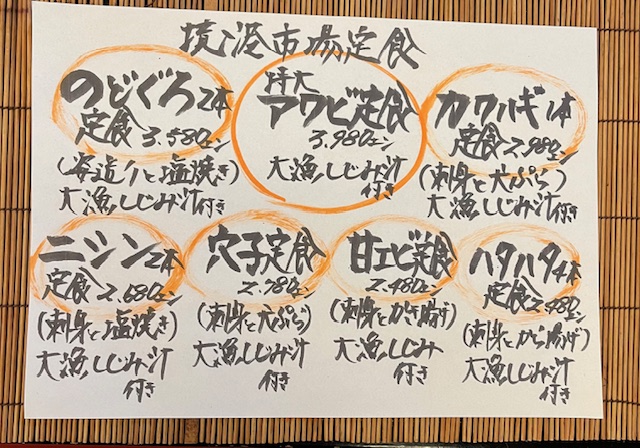 境港市場定食
のどぐろ2本
定食3.580エン
(姿造りと塩焼き)
大漁しじみ汁
付き
特大
アワビ定食
3.980エン
大漁しじみ汁
付き
カワハギ1本
定食2.980エン
(刺身と天ぷら)
大漁しじみ汁
付き
ニシン2本
定食2.680エン
(刺身と塩焼き)
大漁しじみ汁
付き
穴子定食
2.980エン
(刺身と天ぷら)
大漁しじみ汁
付き
甘エビ定食
2.480エン
(刺身とかき揚げ)
大漁しじみ
付き
ハタハタ4本
定食2.980エン
(刺身とから揚げ)
大漁しじみ汁
付き